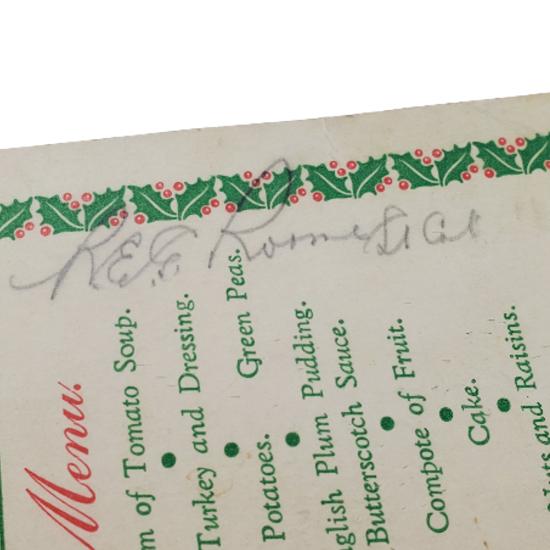 R.E.G. Roome Lt Col
Menu.
m of Tomato Soup.
Turkey and Dressing.
Potatoes. Green Peas.
glish Plum Pudding.
Butterscotch Sauce.
Compote of Fruit.
Cake.
and Raisins.